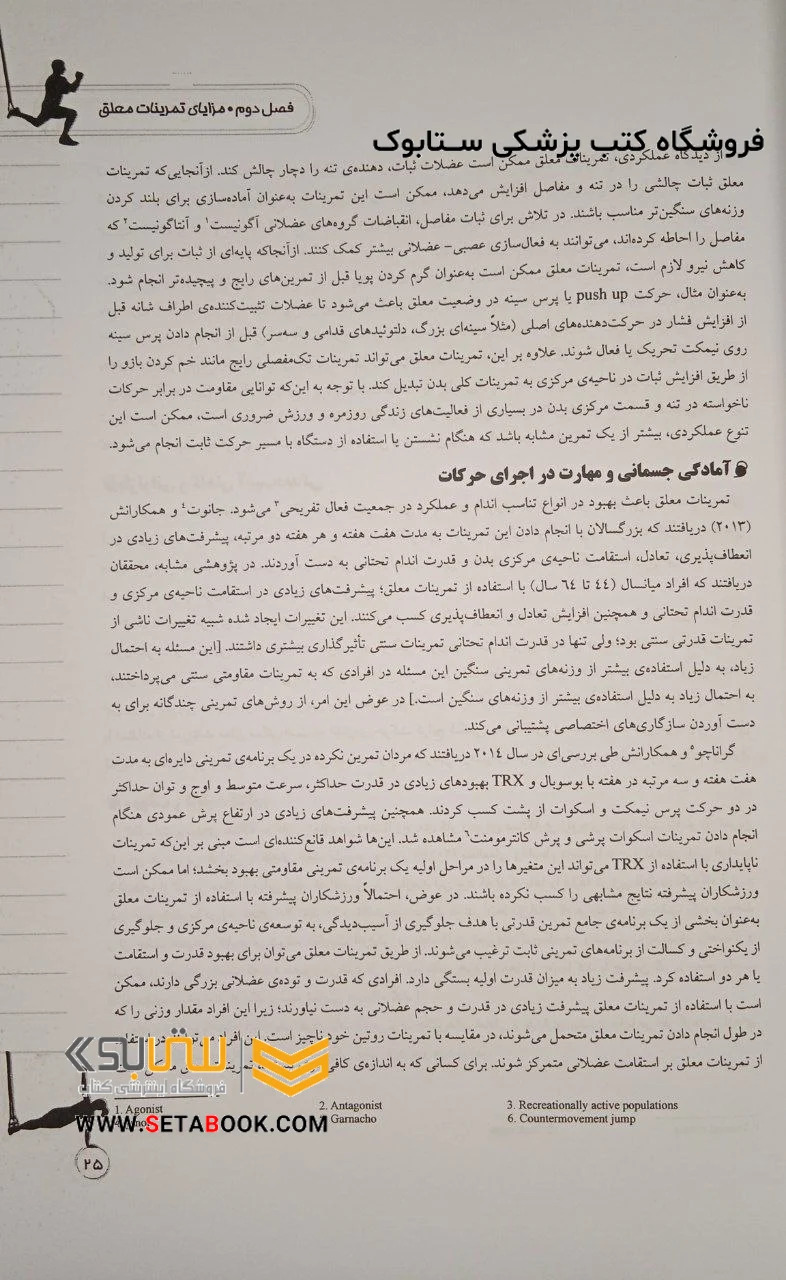 فصل دوم • مزایای تمرینات معلق
فروشگاه کتب پزشکی ستابوک
از دیدگاه عملکردی، تمرینات معلق ممکن است عضلات ثبات، دهنده‌ی تنه را دچار چالش کند. ازآنجایی‌که تمرینات
معلق ثبات چالشی را در تنه و مفاصل افزایش می‌دهد، ممکن است این تمرینات به‌عنوان آماده‌سازی برای بلند کردن
وزنه‌های سنگین‌تر مناسب باشند. در تلاش برای ثبات مفاصل، انقباضات گروه‌های عضلانی آگونیست۱ و آنتاگونیست۲ که
مفاصل را احاطه کرده‌اند، می‌توانند به فعال‌سازی عصبی- عضلانی بیشتر کمک کنند. ازآنجاکه پایه‌ای از ثبات برای تولید و
کاهش نیرو لازم است، تمرینات معلق ممکن است به‌عنوان گرم کردن پویا قبل از تمرین‌های رایج و پیچیده‌تر انجام شود.
به‌عنوان مثال، حرکت push up یا پرس سینه در وضعیت معلق باعث می‌شود تا عضلات تثبیت‌کننده‌ی اطراف شانه قبل
از افزایش فشار در حرکت‌دهنده‌های اصلی (مثلاً سینه‌ای بزرگ، دلتوئیدهای قدامی و سه‌سر) قبل از انجام دادن پرس سینه
روی نیمکت تحریک یا فعال شوند. علاوه بر این، تمرینات معلق می‌تواند تمرینات تک‌مفصلی رایج مانند خم کردن بازو را
از طریق افزایش ثبات در ناحیه‌ی مرکزی به تمرینات کلی بدن تبدیل کند. با توجه به این‌که توانایی مقاومت در برابر حرکات
ناخواسته در تنه و قسمت مرکزی بدن در بسیاری از فعالیت‌های زندگی روزمره و ورزش ضروری است، ممکن است این
تنوع عملکردی، بیشتر از یک تمرین مشابه باشد که هنگام نشستن یا استفاده از دستگاه با مسیر حرکت ثابت انجام می‌شود.
آمادگی جسمانی و مهارت در اجرای حرکات
تمرینات معلق باعث بهبود در انواع تناسب اندام و عملکرد در جمعیت فعال تفریحی۳ می‌شود. جانوت۴ و همکارانش
(۲۰۱۳) دریافتند که بزرگسالان با انجام دادن این تمرینات به مدت هفت هفته و هر هفته دو مرتبه، پیشرفت‌های زیادی در
انعطاف‌پذیری، تعادل، استقامت ناحیه‌ی مرکزی بدن و قدرت اندام تحتانی به دست آوردند. در پژوهشی مشابه، محققان
دریافتند که افراد میانسال (٤٤ تا ٦٤ سال) با استفاده از تمرینات معلق؛ پیشرفت‌های زیادی در استقامت ناحیه‌ی مرکزی و
قدرت اندام تحتانی و همچنین افزایش تعادل و انعطاف‌پذیری کسب می‌کنند. این تغییرات ایجاد شده شبیه تغییرات ناشی از
تمرینات قدرتی سنتی بود؛ ولی تنها در قدرت اندام تحتانی تمرینات سنتی تأثیرگذاری بیشتری داشتند. [این مسئله به احتمال
زیاد، به دلیل استفاده‌ی بیشتر از وزنه‌های تمرینی سنگین این مسئله در افرادی که به تمرینات مقاومتی سنتی می‌پرداختند،
به احتمال زیاد به دلیل استفاده‌ی بیشتر از وزنه‌های سنگین است.] در عوض این امر، از روش‌های تمرینی چندگانه برای به
دست آوردن سازگاری‌های اختصاصی پشتیبانی می‌کند.
گراناچو٥ و همکارانش طی بررسی‌ای در سال ۲۰۱٤ دریافتند که مردان تمرین نکرده در یک برنامه‌ی تمرینی دایره‌ای به مدت
هفت هفته و سه مرتبه در هفته با بوسوبال و TRX بهبودهای زیادی در قدرت حداکثر، سرعت متوسط و اوج و توان حداکثر
در دو حرکت پرس نیمکت و اسکوات از پشت کسب کردند. همچنین پیشرفت‌های زیادی در ارتفاع پرش عمودی هنگام
انجام دادن تمرینات اسکوات پرشی و پرش کانترمومنت٦ مشاهده شد. این‌ها شواهد قانع‌کننده‌ای است مبنی بر این‌که تمرینات
ناپایداری با استفاده از TRX می‌تواند این متغیرها را در مراحل اولیه یک برنامه‌ی تمرینی مقاومتی بهبود بخشد؛ اما ممکن است
ورزشکاران پیشرفته نتایج مشابهی را کسب نکرده باشند. در عوض، احتمالاً ورزشکاران پیشرفته با استفاده از تمرینات معلق
به‌عنوان بخشی از یک برنامه‌ی جامع تمرین قدرتی با هدف جلوگیری از آسیب‌دیدگی، به توسعه‌ی ناحیه‌ی مرکزی و جلوگیری
از یکنواختی و کسالت از برنامه‌های تمرینی ثابت ترغیب می‌شوند. از طریق تمرینات معلق می‌توان برای بهبود قدرت و استقامت
یا هر دو استفاده کرد. پیشرفت زیاد به میزان قدرت اولیه بستگی دارد. افرادی که قدرت و توده‌ی عضلانی بزرگی دارند، ممکن
است با استفاده از تمرینات معلق پیشرفت زیادی در قدرت و حجم عضلانی به دست نیاورند؛ زیرا این افراد مقدار وزنی را که
در طول انجام دادن تمرینات معلق متحمل می‌شوند، در مقایسه با تمرینات روتین خود ناچیز است. این افراد
از تمرینات معلق بر استقامت عضلانی متمرکز شوند. برای کسانی که به اندازه‌ی کافی
ستابوک
فروشگاه اینترنتی کتاب
1. Agonist 2. Antagonist 3. Recreationally active populations
Garnacho 6. Countermovement jump
WWW.SETABOOK.COM
۲۵